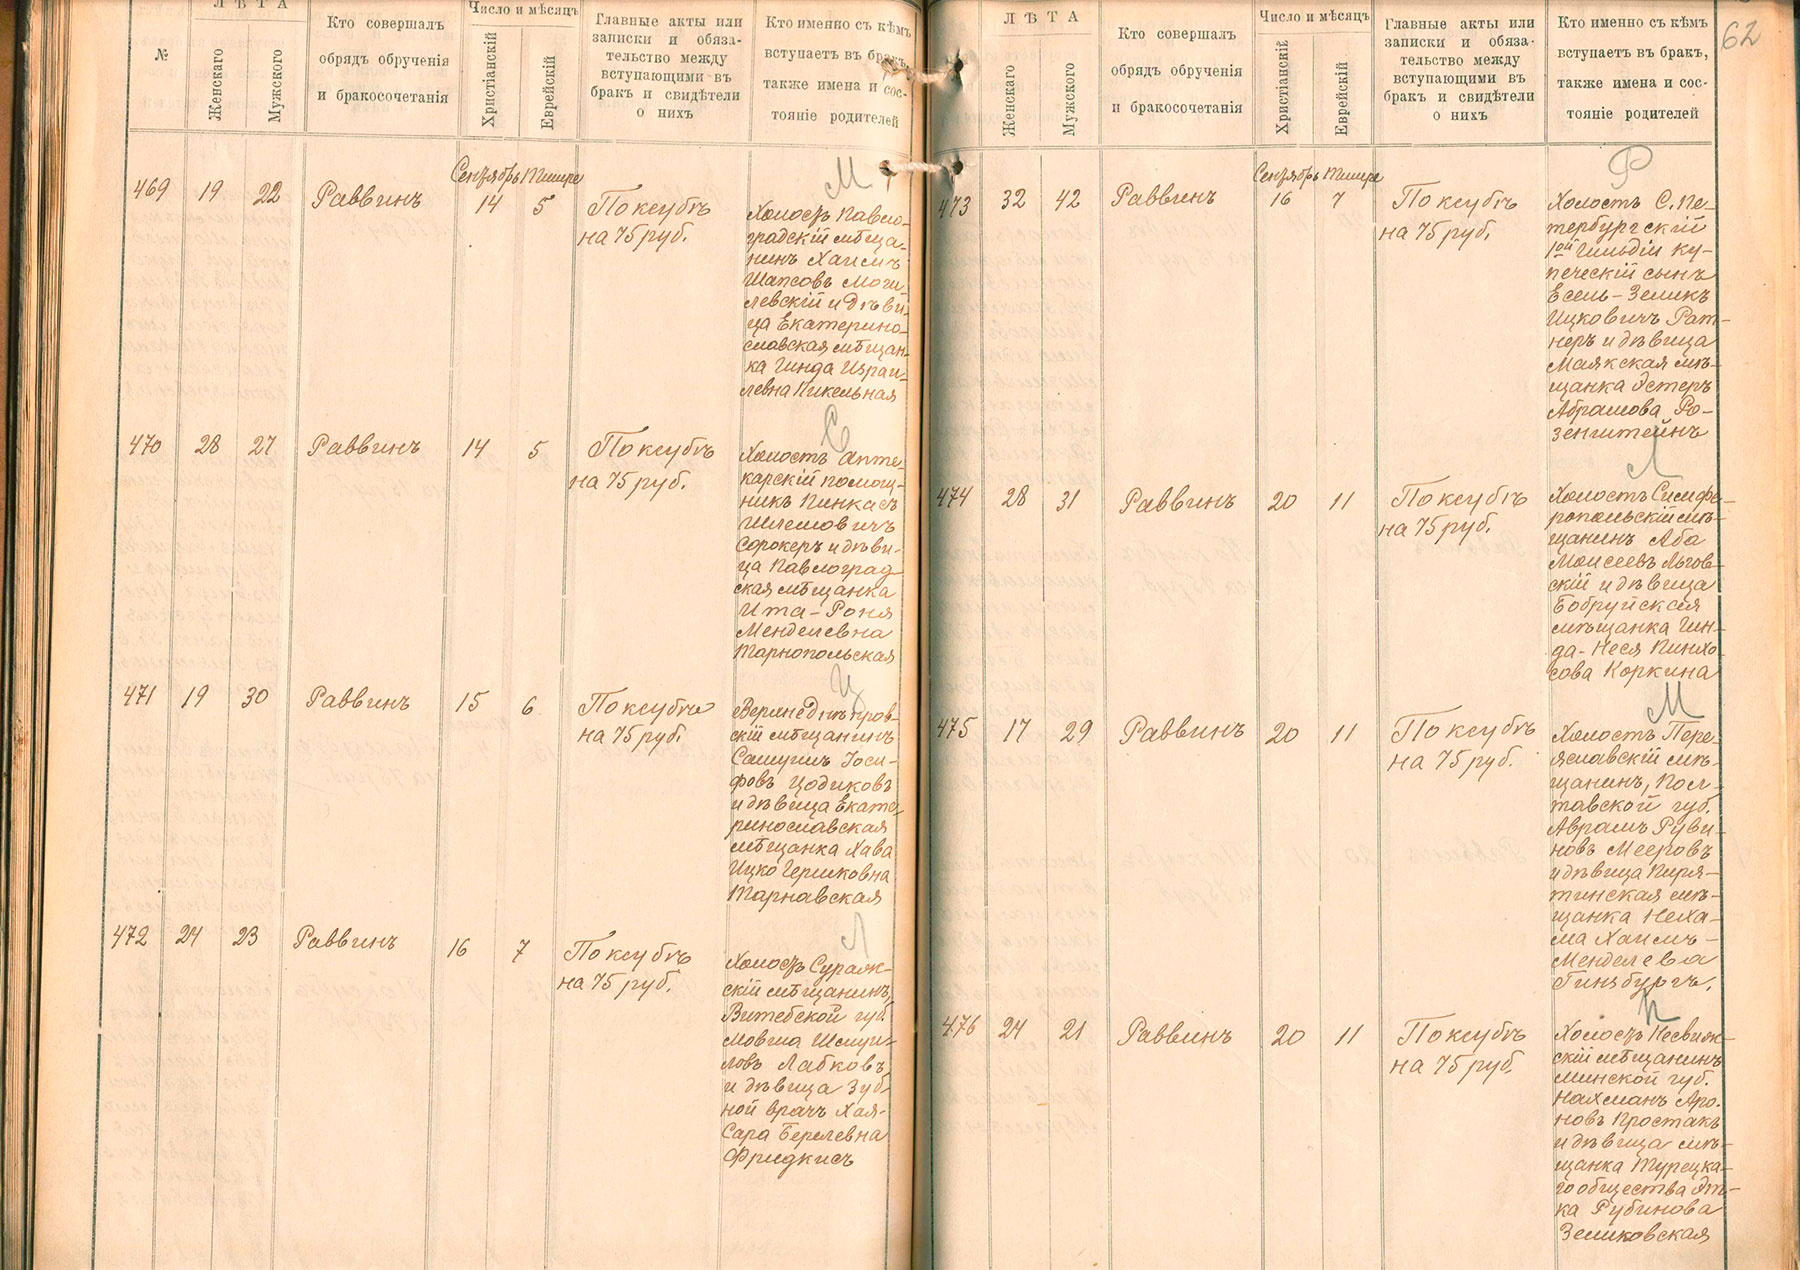 ЛѢТА
№
Женскаго
Мужского
Кто совершалъ
обрядъ обрученія
и бракосочетанія
Число и мѣсяцъ
Христіанскій
Еврейскій
Главные акты или
записки и обяза-
тельство между
вступающими въ
бракъ и свидѣтели
о нихъ
Кто именно съ кѣмъ
вступаетъ въ бракъ,
также имена и сос-
тояніе родителей
Сентябрь Тишре
469 19 22 Раввинъ 14 5
По ксубѣ
на 75 руб.
М
Холостъ Павло-
градскій мѣща-
нинъ Хаимъ
Шапсовъ Моги-
левскій и дѣви-
ца Екатерино-
славская мѣщан-
ка Гинда Израи-
левна Пикельная
470 28 27 Раввинъ 14 5
По ксубѣ
на 75 руб.
С
Холостъ Апте-
карскій помощ-
никъ Пинкасъ
Шлемовичъ
Сорокеръ и дѣви-
ца Павлоград
ская мѣщанка
Ита-Роня
Менделевна
Тарнопольская
471 19 30 Раввинъ 15 6
По ксубѣ
на 75 руб.
Ц
Верхнеднѣпров-
скій мѣщанинъ
Самуилъ Іоси-
фовъ Цодиковъ
и дѣвица Екате-
ринославская
мѣщанка Хава
Ицко Гершковна
Тарнавская
472 24 23 Раввинъ 16 7
По ксубѣ
на 75 руб.
Л
Холостъ Сураж-
скій мѣщанинъ,
Витебской губ.
Мовша Шмуи-
ловъ Лабковъ
и дѣвица Зуб-
ной врачъ Хая-
Сара Берелевна
Фридкисъ
62
ЛѢТА
Женскаго
Мужского
Кто совершалъ
обрядъ обрученія
и бракосочетанія
Число и мѣсяцъ
Христіанскій
Еврейскій
Главные акты или
записки и обяза-
тельство между
вступающими въ
бракъ и свидѣтели
о нихъ
Кто именно съ кѣмъ
вступаетъ въ бракъ,
также имена и сос-
тояніе родителей
Сентябрь Тишре
473 32 42 Раввинъ 16 7
По ксубѣ
на 75 руб.
Р
Холостъ С. Пе-
тербургскій
1ой Гильдіи ку-
печескій сынъ
Есель-Зеликъ
Ицковичъ Рат-
неръ и дѣвица
Маякская мѣ-
щанка Эстеръ
Абрамова Ро-
зенштейнъ
474 28 31 Раввинъ 20 11
По ксубѣ
на 75 руб.
Л
Холостъ Симфе-
ропольскій мѣ-
щанинъ Аба
Моисеевъ Льгов-
скій и дѣвица
Бобруйская
мѣщанка Гин-
да-Неся Пинхо-
сова Коркина
475 17 29 Раввинъ 20 11
По ксубѣ
на 75 руб.
М
Холостъ Пере-
яславскій мѣ-
щанинъ, Пол-
тавской губ.
Аврамъ Руви-
новъ Мееровъ
и дѣвица Пиря-
тинская мѣ-
щанка Неха-
ма Хаимъ-
Менделева
Гинзбургъ.
476 24 21 Раввинъ 20 11
По ксубѣ
на 75 руб.
П
Холостъ Несвиж-
скій мѣщанинъ
Минской губ.
Нахманъ Аро-
новъ Простакъ
и дѣвица мѣ-
щанка Турецка-
го общества Эт-
ка Рубинова
Зеликовская